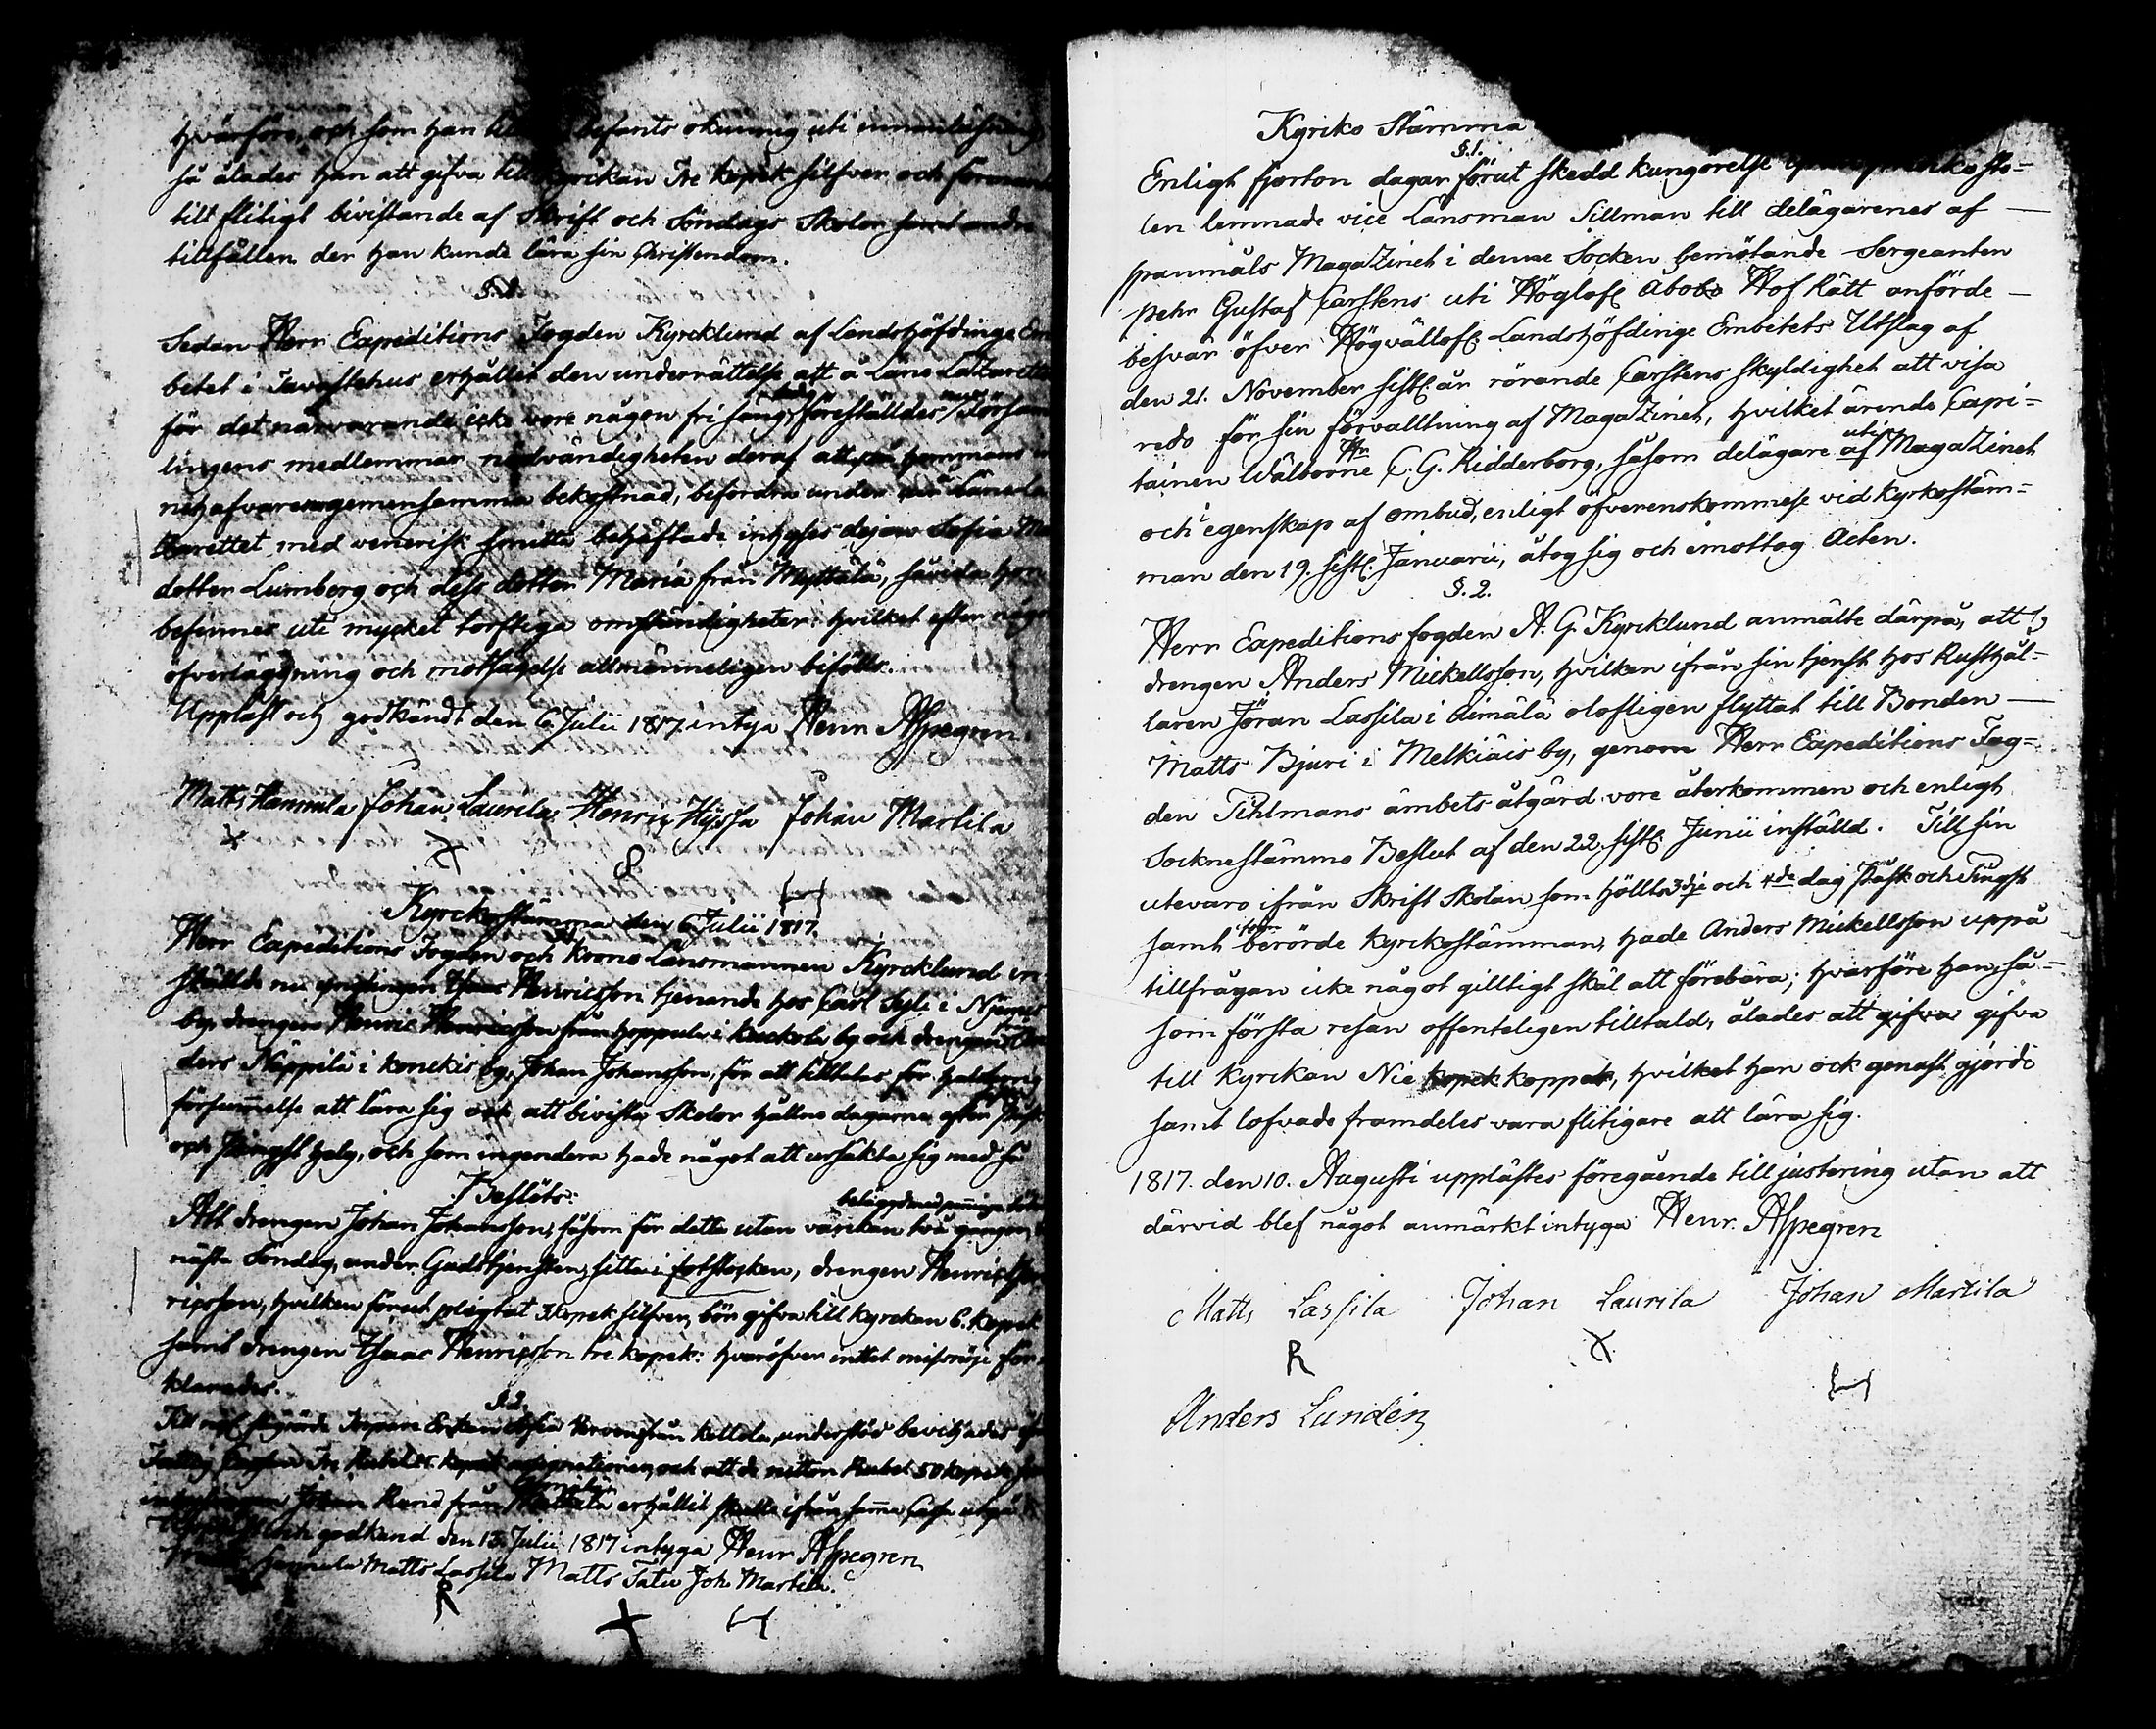 hvarföre, och som han befants okunnig uti innanläsning
så ålades han att gifva till kyrckan Tre kopek silfver och
till flitigt bivistande af Skrift och Söndags Skolor samt andra
tillfällen der han kunde lära sin Christendom.
Sedan Herr Expeditions Fogden Kyrcklund af Landshöfdinge Em
betet i Tavastehus erhållit den underrättelse att å Läns Lazarettet
för det närvarande icke vore någon fri säng, föreställdes Försam
lingens medlemmar nödvändigheten deraf att hemmans in
nehafvare gemensamma bekostnad, befordra under Läns la
zarettet med venerisk smitta behäftade inhyses dejan Sofia
dotter Lumberg och dess dotter Maria från Myttälä, såvida hon
befinnes uti mycket torftiga omständigheter: hvilket efter någon
öfverläggning och motsägelse allmänneligen bifölls.
Uppläst och godkändt den 6 Julii 1817 intyga Henr Aspegren.
Matts Hannula Johan Laurila Henric Hyssa Johan Martila
Kyrckostämma den 6 Julii 1817.
Herr Expeditions Fogden och Krono Länsmannen Kyrcklund in
ställde nu ynglingen Isaac Henricsson tjenande hos Carl Syli i
by, drengen Henric Henricsson från Hoppula i kuckola by och drengen
ders Näppilä i konekis by, Johan Johansson, för att tilltalas för
försummelse att lära sig och att bivista Skolor hållne dagarne efter Påsk
och Pingst helg, och som ingendera hade något att ursäkta sig med så
Beslöts:
belagd med
Att drengen Johan Johansson, såsom för detta utan värckan två gånger
nästa Söndag, under Gudstjensten, sitta i fotstocken, drengen Henric Hen
ricsson, hvilken förut plägtat 3 kopek silfver, bör gifva till kyrckan 6. kopek
samt drengen Isaac Henricsson tre kopek: hvaröfver inttet missnöje för
klarades.
§.2.
Till understöd beviljades
Fattig Cassan Tre Rubel kopek assignationer, och att de nitton Rubel 50 kopek
Johan från erhållit skulle ifrån samma Cassa utgå
och godkänd den 13 Julii 1817 intyga Henr Aspegren
Hannula Matts Lassila Matts Tatu Joh Martila.
R
Kyrko Stämma
§.1.
Enligt fjorton dagar förut skedd kungörelse
len lemnade vice Länsman Tillman till delägarenes af
spanmåls MagaZinet i denne Socken bemötande Sergeanten
Pehr Gustaf Carstens uti Höglofl Åbo Hof Rätt anförde
besvär öfver Högvällofl. Landshöfdinge Embetets Utslag af
den 21. November sistl. år rörande Carstens skyldighet att visa
redo för sin förvalltning af MagaZinet, hvilket ärende Capi=
tainen Wälborne Hr C. G. Ridderborg, såsom delägare uti MagaZinet
och i egenskap af ombud, enligt öfverenskommelse vid kyrkostäm=
man den 19. sistl. Januarii, åtog sig och imottog Acten.
§.2.
Herr Expeditions fogden A. G. Kyrcklund anmälte därpå, att
drengen Anders Mickellsson, hvilken ifrån sin tjenst hos Rusthål=
laren Jöran Lassila i Aimälä olofligen flyttat till Bonden
Matts Bjuri i Melkiäis by, genom Herr Expeditions Fog=
den Tihlmans ämbets åtgärd vore återkommen och enligt
Sockneslämmo Beslut af den 22 sistl. Junii inställd. Till sin
utevaro ifrån Skrift Skolan som höllts 3dje och 4de dag Påsk och Pingst
samt förberörde kyrckostämman, hade Anders Mickellsson uppå
tillfrågan icke något gilltigt skäl att förebära; hvarföre han, så=
som första resan offenteligen tilltald, ålades att gifva gifva
till kyrckan Nie kopek koppek, hvilket han ock genast gjorde
samt lofvade framdeles vara flitigare att lära sig.
1817. den 10. Augusti upplästes föregående till justering utan att
därvid blef något anmärkt intyga Henr. Aspegren
Matts Lassila Johan Laurila Johan Martila
R
Anders Lundén